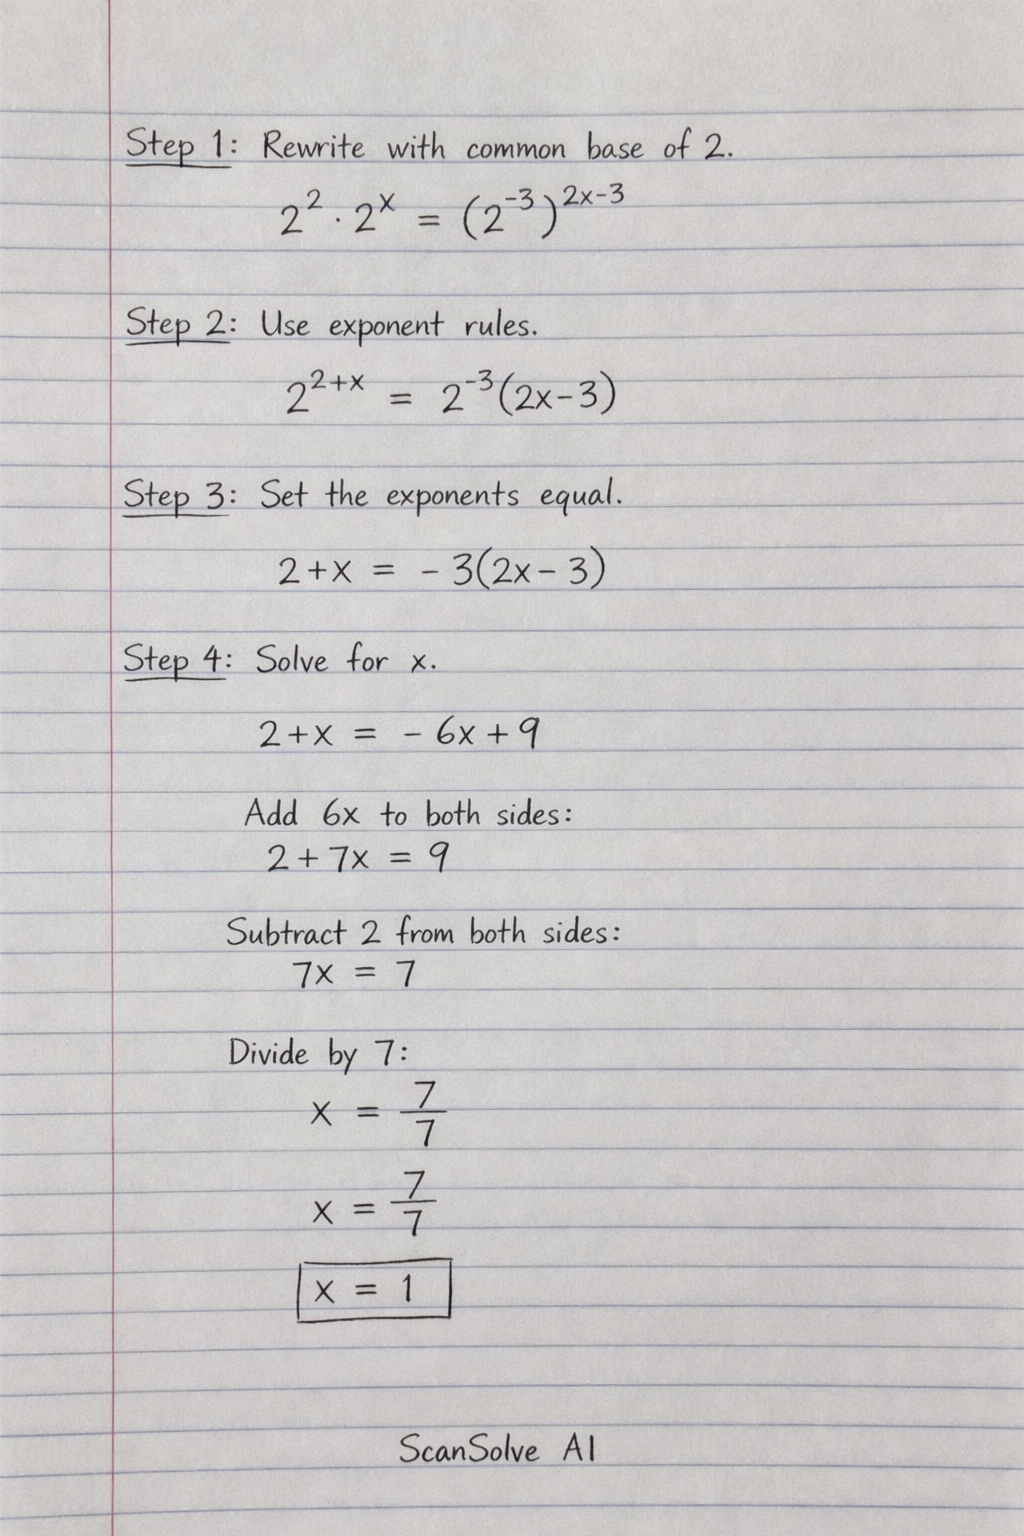 Step 1: Rewrite with common base of 2.
2² · 2ˣ = (2⁻³)²ˣ⁻³
Step 2: Use exponent rules.
2²⁺ˣ = 2⁻³(2x-3)
Step 3: Set the exponents equal.
2+x = -3(2x-3)
Step 4: Solve for x.
2+x = -6x+9
Add 6x to both sides:
2+7x = 9
Subtract 2 from both sides:
7x = 7
Divide by 7:
x = 7/7
x = 7/7
x = 1
ScanSolve AI